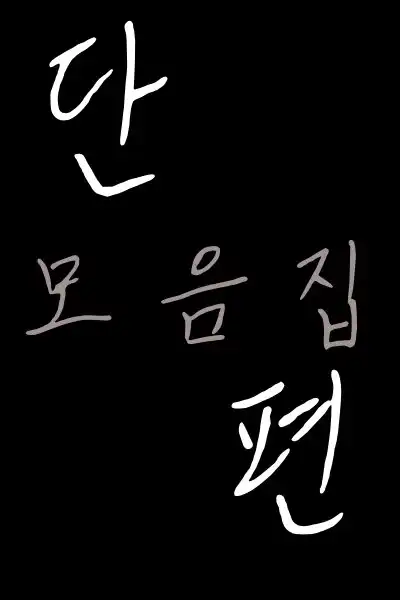 단
모음집
편